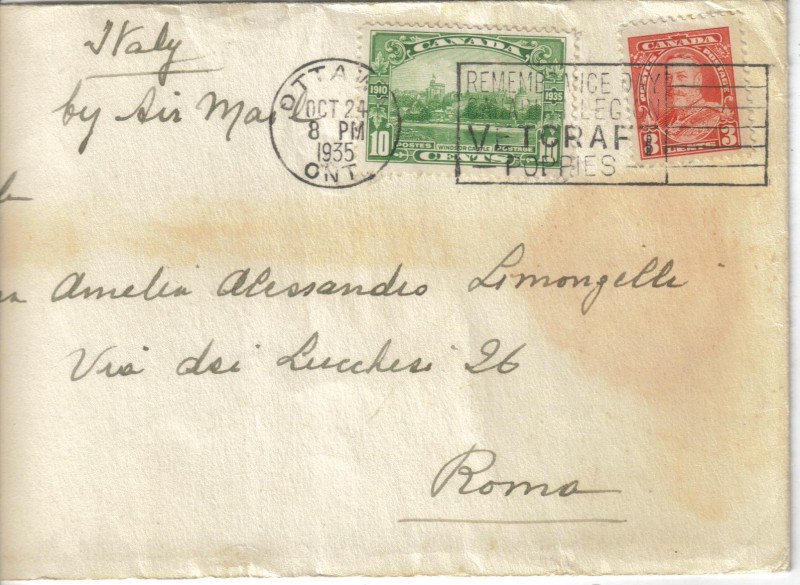 Italy
by Air Mail
OTTAWA
OCT 24
8 PM
1935
ONT.
CANADA
1910 1935
10 10
POSTES WINDSOR CASTLE POSTAGE
CENTS
REMEMBRANCE DAY
LEG
VETCRAFT
POPPIES
CANADA
POSTES POSTAGE
3
CENTS
Amelia Alessandro Limongelli
Via dei Lucchesi 26
Roma